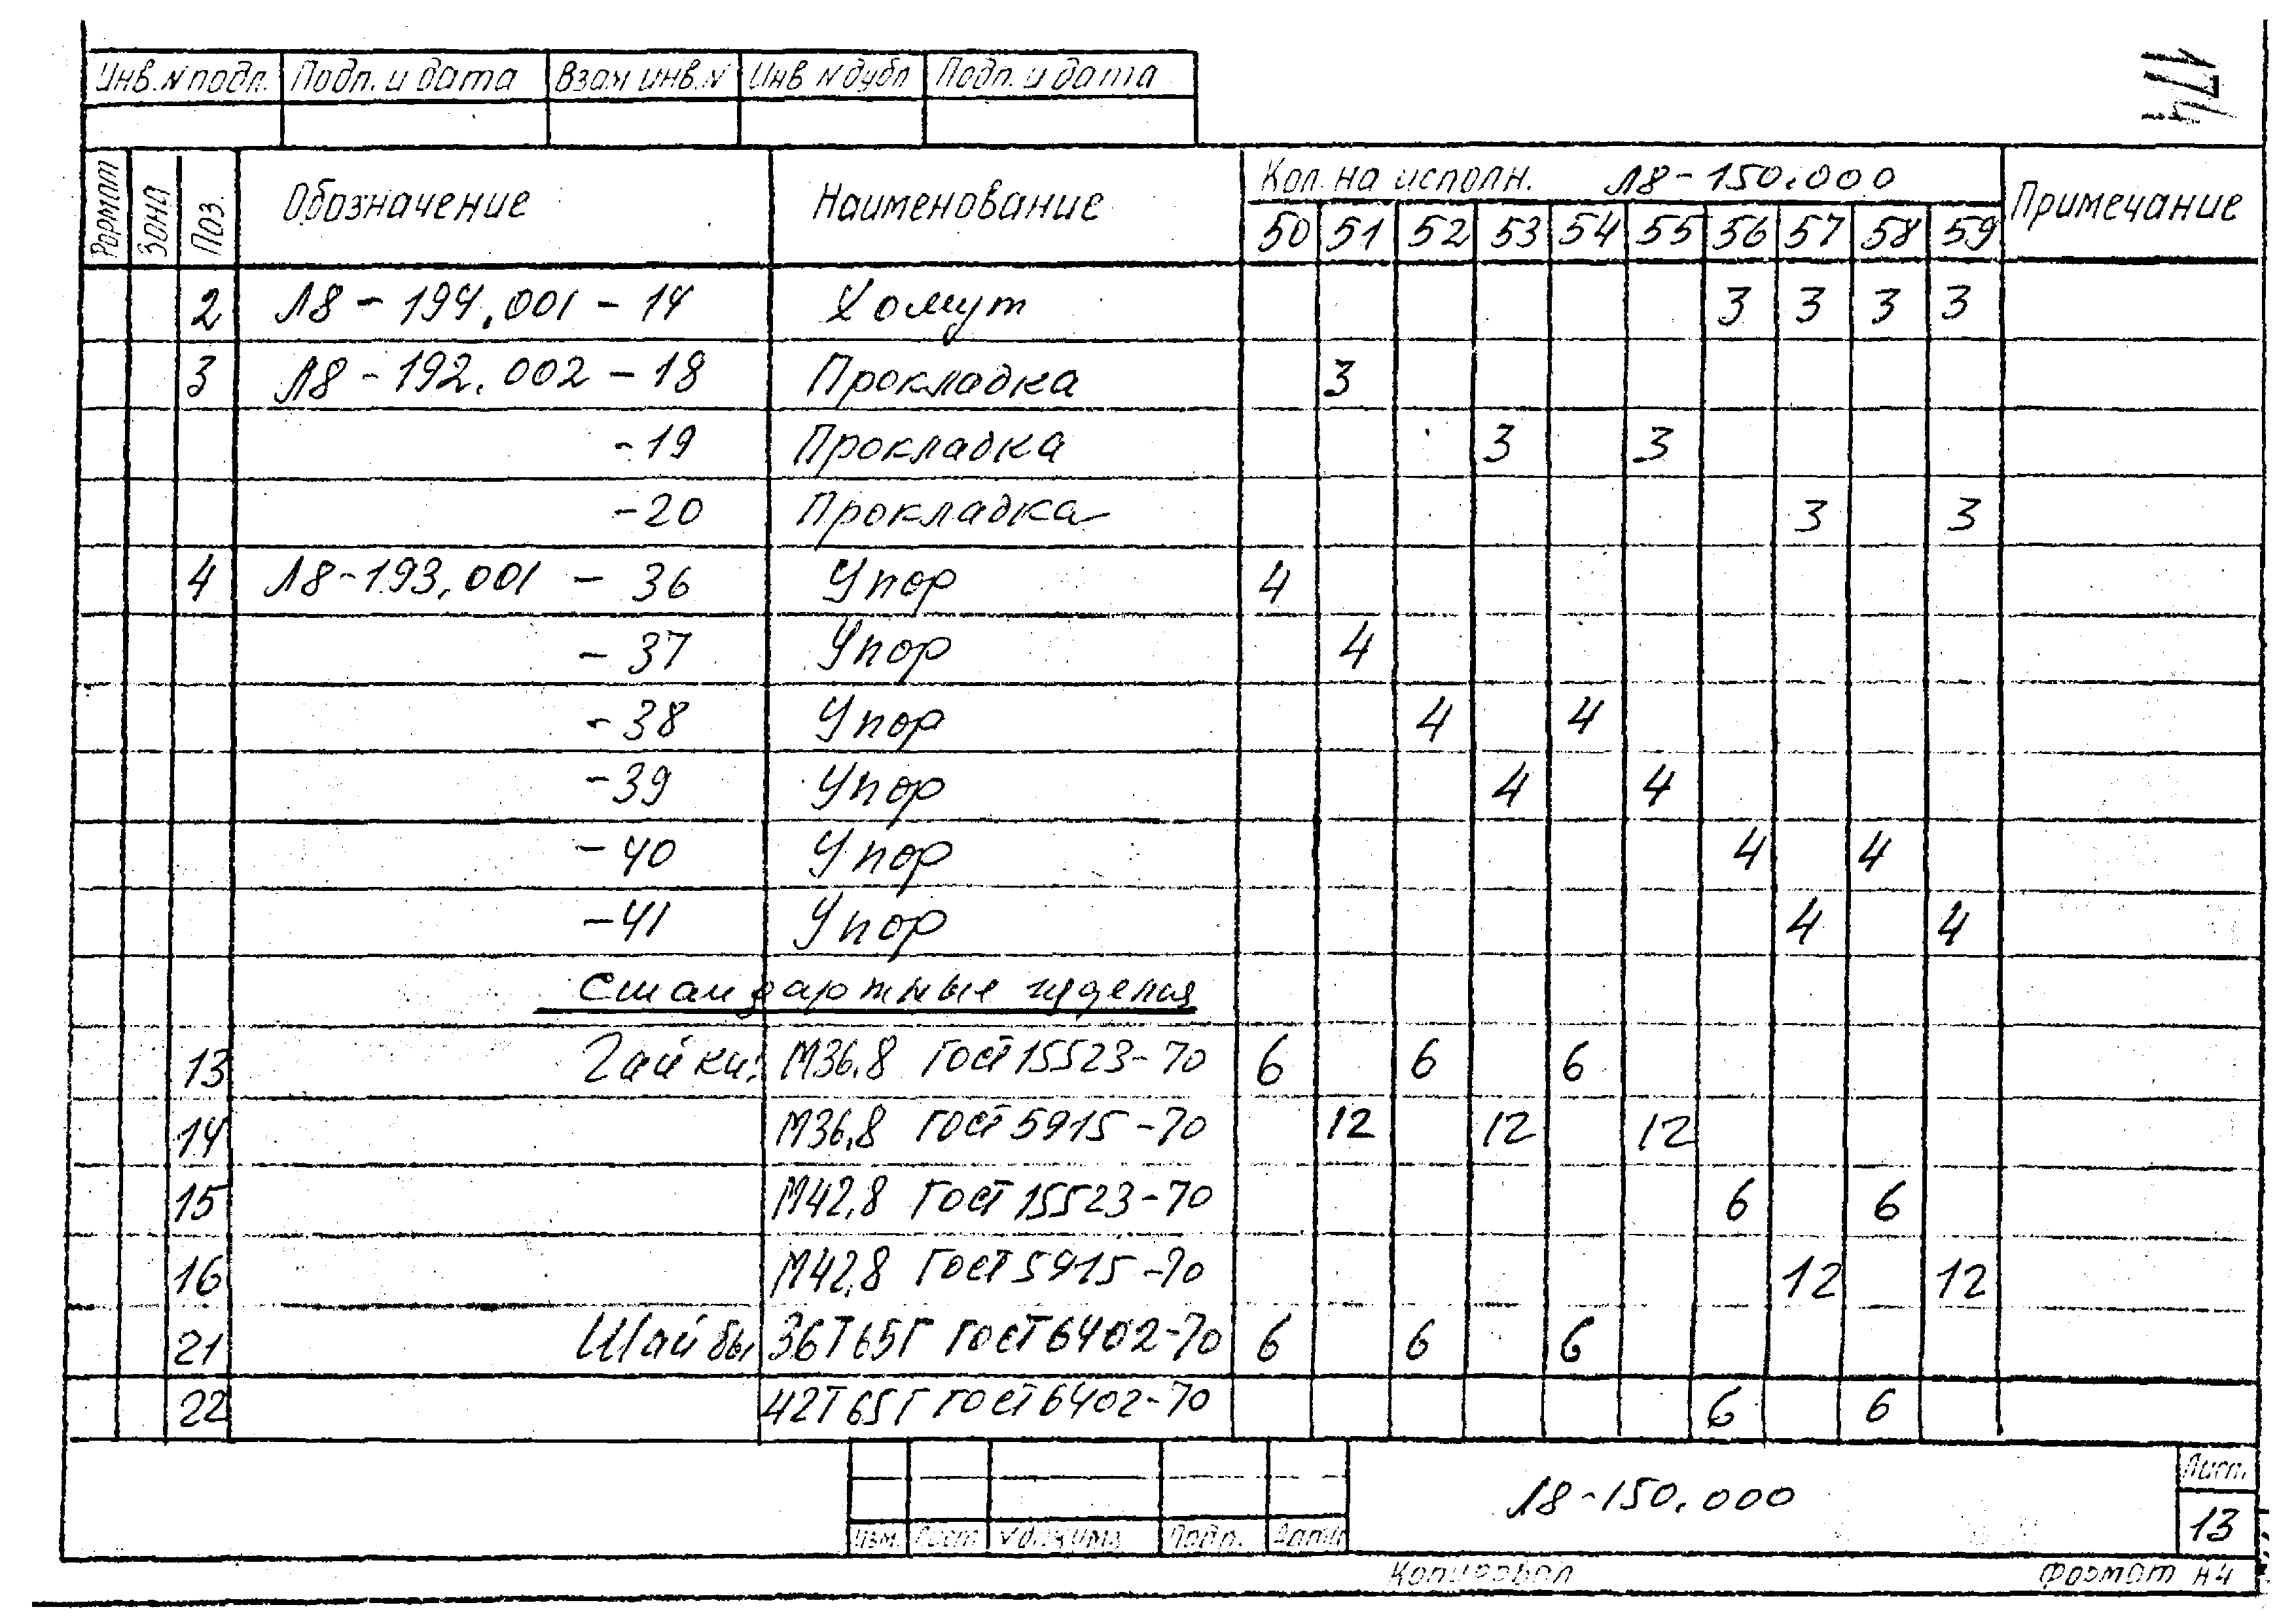 174
Инв. N подл. Подп. и дата Взам инв. N Инв N дубл Подп. и дата
Формат Зона Поз. Обозначение Наименование Кол. на исполн. Л8-150.000 Примечание
50 51 52 53 54 55 56 57 58 59
2 Л8-194.001-14 Хомут 3 3 3 3
3 Л8-192.002-18 Прокладка 3
-19 Прокладка 3 3
-20 Прокладка 3 3
4 Л8-193.001-36 Упор 4
-37 Упор 4
-38 Упор 4 4
-39 Упор 4 4
-40 Упор 4 4
-41 Упор 4 4
Стандартные изделия
13 Гайки: М36.8 ГОСТ 15523-70 6 6 6
14 М36.8 ГОСТ 5915-70 12 12 12
15 М42.8 ГОСТ 15523-70 6 6
16 М42.8 ГОСТ 5915-70 12 12
21 Шайбы 36Т65Г ГОСТ 6402-70 6 6 6
22 42Т65Г ГОСТ 6402-70 6 6
Л8-150.000 Лист.
Изм. Лист N докум. Подп. Дата 13
Копировал Формат А4